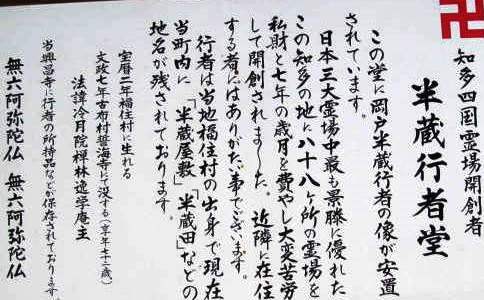 卍
知多四国霊場開創者
半蔵行者堂
この堂に岡戸半蔵行者の像が安置
されています。
日本三大霊場中最も景勝に優れた
この知多の地に八十八ヶ所の霊場を
私財と七年の歳月を費やし大変苦労
して開創されました。近隣に在住
する者にはありがたい事でございます。
行者は当地福住村の出身で現在
当町内に「半蔵屋敷」「半蔵田」などの
地名が残されております。
宝暦二年福住村に生れる
文政七年古布村誓海寺にて没する(享年七十二歳)
法諱冷月院禅林逸学庵主
当興昌寺に行者の所持品などが保存されております。
無六阿弥陀仏 無六阿弥陀仏